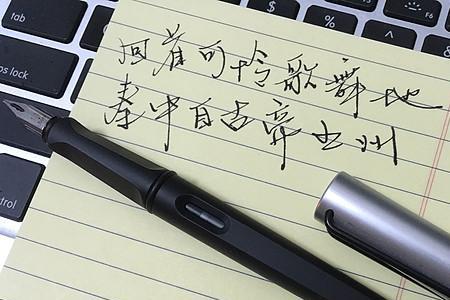 F6
$
%
^
tab
ps lock
trol
回首可怜歌舞地
秦中自古帝王州